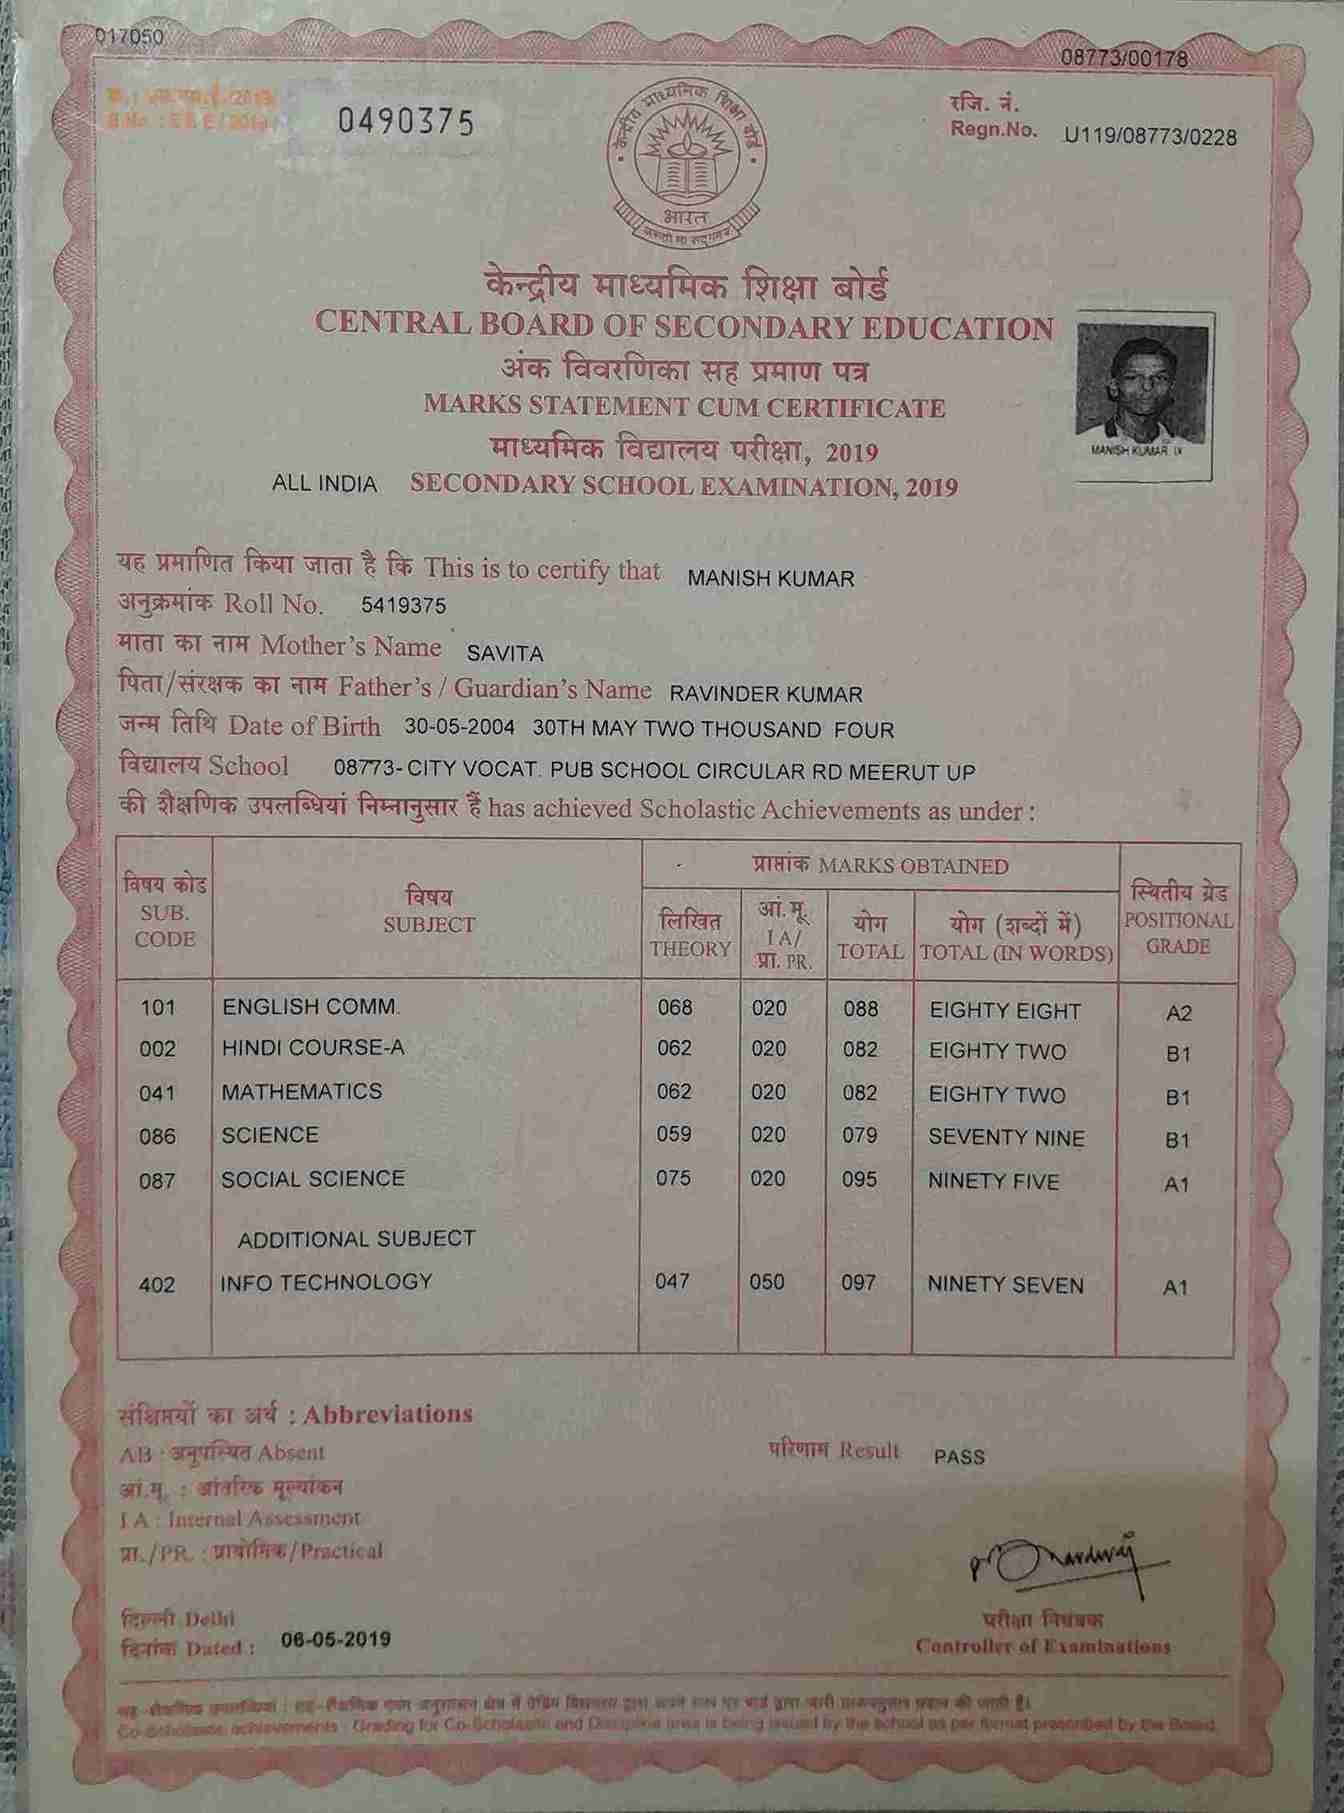 017050
08773/00178
0490375
रजि. नं.
Regn.No. U119/08773/0228
केन्द्रीय माध्यमिक शिक्षा बोर्ड
भारत
केन्द्रीय माध्यमिक शिक्षा बोर्ड
CENTRAL BOARD OF SECONDARY EDUCATION
अंक विवरणिका सह प्रमाण पत्र
MARKS STATEMENT CUM CERTIFICATE
माध्यमिक विद्यालय परीक्षा, 2019
ALL INDIA SECONDARY SCHOOL EXAMINATION, 2019
MANISH KUMAR IX
यह प्रमाणित किया जाता है कि This is to certify that MANISH KUMAR
अनुक्रमांक Roll No. 5419375
माता का नाम Mother's Name SAVITA
पिता/संरक्षक का नाम Father's / Guardian's Name RAVINDER KUMAR
जन्म तिथि Date of Birth 30-05-2004 30TH MAY TWO THOUSAND FOUR
विद्यालय School 08773- CITY VOCAT. PUB SCHOOL CIRCULAR RD MEERUT UP
की शैक्षणिक उपलब्धियां निम्नानुसार हैं has achieved Scholastic Achievements as under :
विषय कोड SUB. CODE
विषय SUBJECT
प्राप्तांक MARKS OBTAINED
लिखित THEORY
आं.मू. I A/ प्रा. PR.
योग TOTAL
योग (शब्दों में) TOTAL (IN WORDS)
स्थितीय ग्रेड POSITIONAL GRADE
101 ENGLISH COMM. 068 020 088 EIGHTY EIGHT A2
002 HINDI COURSE-A 062 020 082 EIGHTY TWO B1
041 MATHEMATICS 062 020 082 EIGHTY TWO B1
086 SCIENCE 059 020 079 SEVENTY NINE B1
087 SOCIAL SCIENCE 075 020 095 NINETY FIVE A1
ADDITIONAL SUBJECT
402 INFO TECHNOLOGY 047 050 097 NINETY SEVEN A1
संक्षिप्तियों का अर्थ : Abbreviations
AB : अनुपस्थित Absent
परिणाम Result PASS
आं.मू. : आंतरिक मूल्यांकन
I A : Internal Assessment
प्रा./PR. : प्रायोगिक/Practical
दिल्ली Delhi
दिनांक Dated : 06-05-2019
परीक्षा नियंत्रक
Controller of Examinations
Co-Scholastic achievements : Grading for Co-Scholastic and Discipline area is being issued by the school as per format prescribed by the Board.